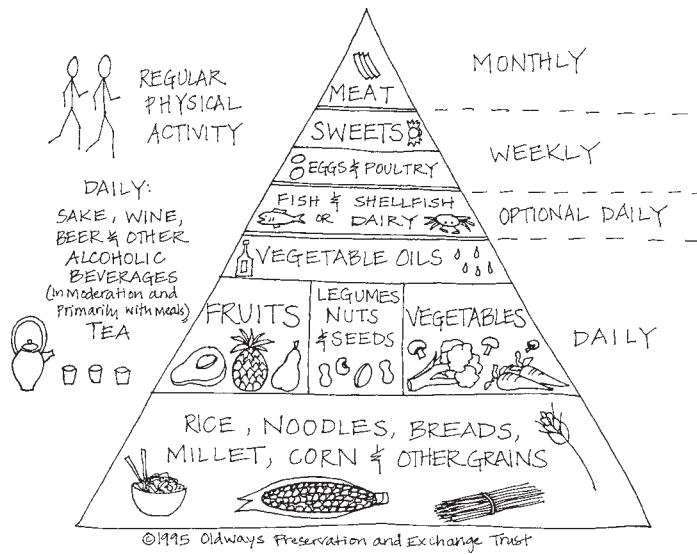 REGULAR
PHYSICAL
ACTIVITY
DAILY:
SAKE, WINE,
BEER & OTHER
ALCOHOLIC
BEVERAGES
(In Moderation and
Primarily with meals)
TEA
MEAT
SWEETS
EGGS & POULTRY
FISH & SHELLFISH
OR DAIRY
VEGETABLE OILS
FRUITS
LEGUMES
NUTS
& SEEDS
VEGETABLES
RICE, NOODLES, BREADS,
MILLET, CORN & OTHER GRAINS
MONTHLY
WEEKLY
OPTIONAL DAILY
DAILY
©1995 Oldways Preservation and Exchange Trust